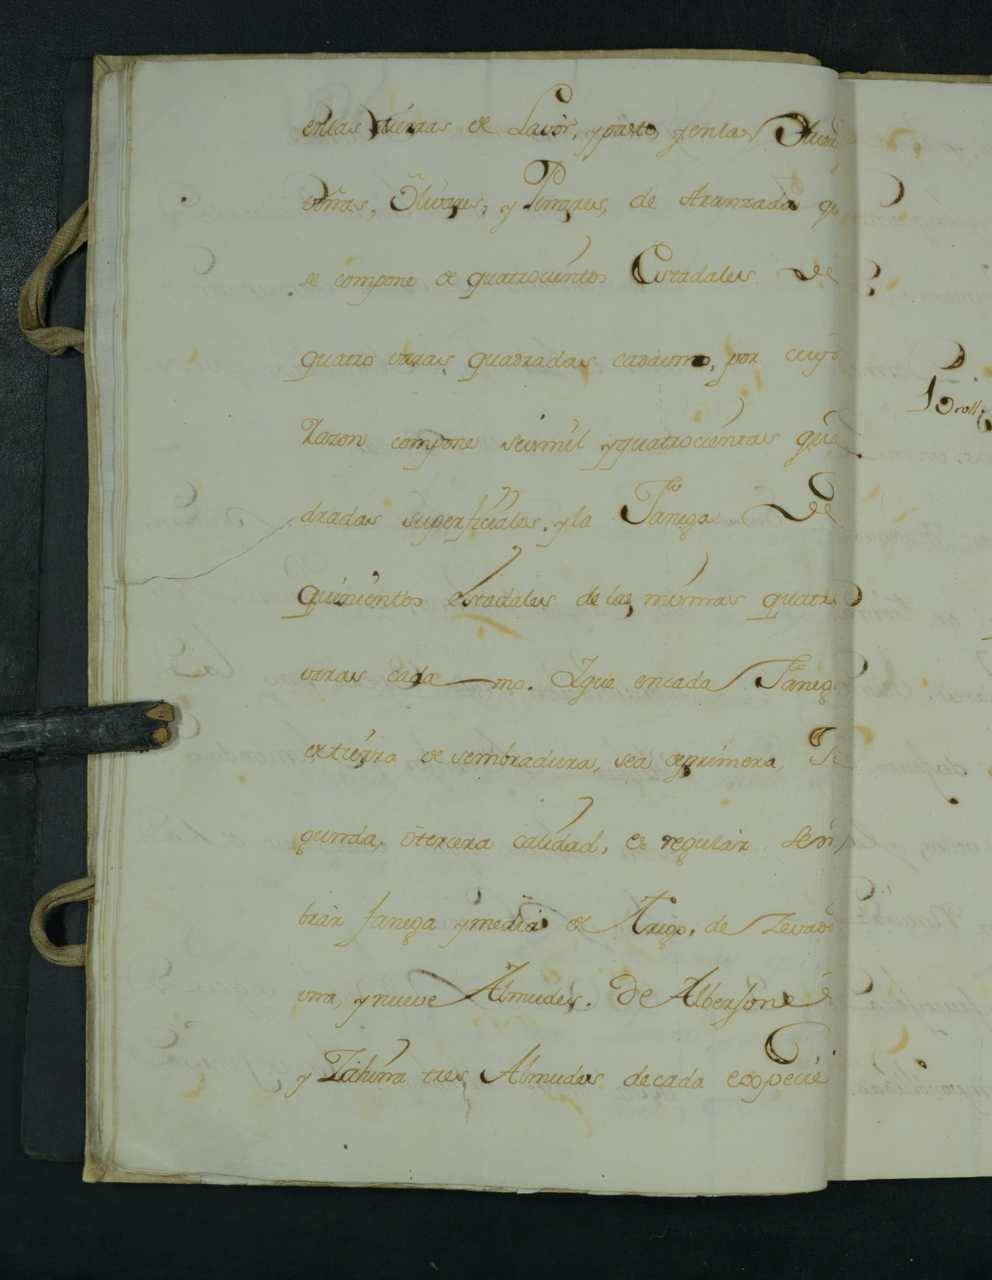 enlas tierras de Lavor, y pasto, y enlas
viñas, Olivares, y Pinares, de Aranzada q
se compone de quatrocientos Estadales de
quatro varas quadradas cadauno, por cuio
Razon compone seismil y quatrocientas qua
dradas superficiales. y la Fanega de
quinientos estadales de las mismas quatro
varas cada uno. Y que encada Faneg
de tierra de sembradura, sea de primera, Se
gunda, ò tercera calidad, es regular Sem
brar fanega y media de Trigo, de Zevad
una, y nueve Almudes. De Alberjones
y Tahina tres Almudes decada especie
Broll